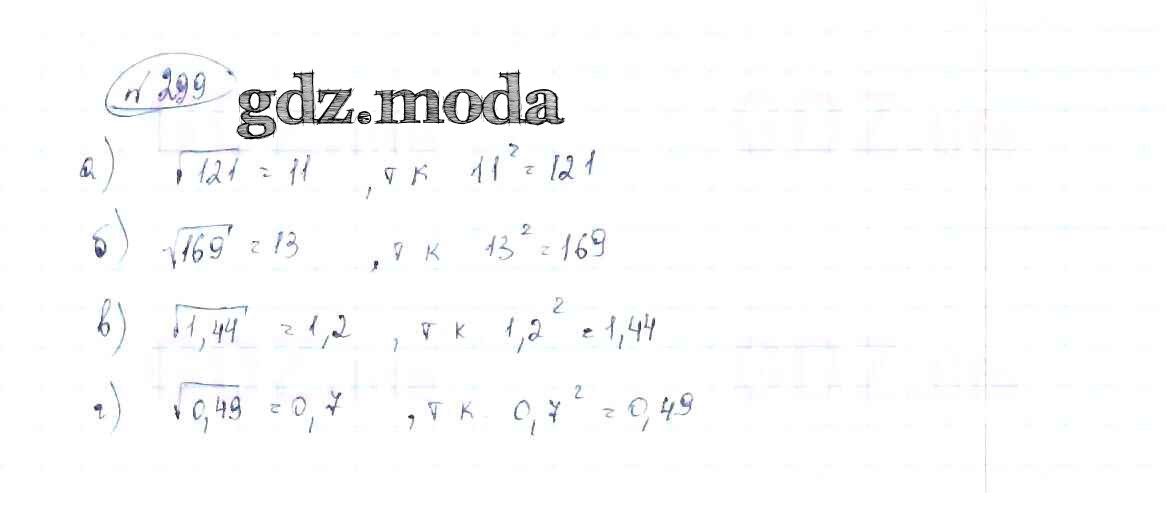 № 299
gdz.moda
а) √121 = 11 , т к 11² = 121
б) √169 = 13 , т к 13² = 169
в) √1,44 = 1,2 , т к 1,2² = 1,44
г) √0,49 = 0,7 , т к 0,7² = 0,49